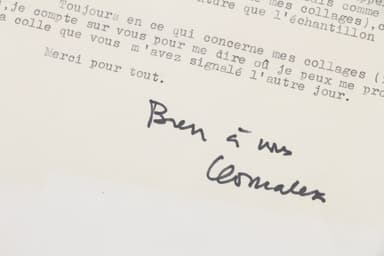 mes collages),
ture que l'échantillon
Toujours en ce qui concerne mes collages (
,je compte sur vous pour me dire où je peux me pro
a colle que vous m'avez signalé l'autre jour.
Merci pour tout.
Bien à vous